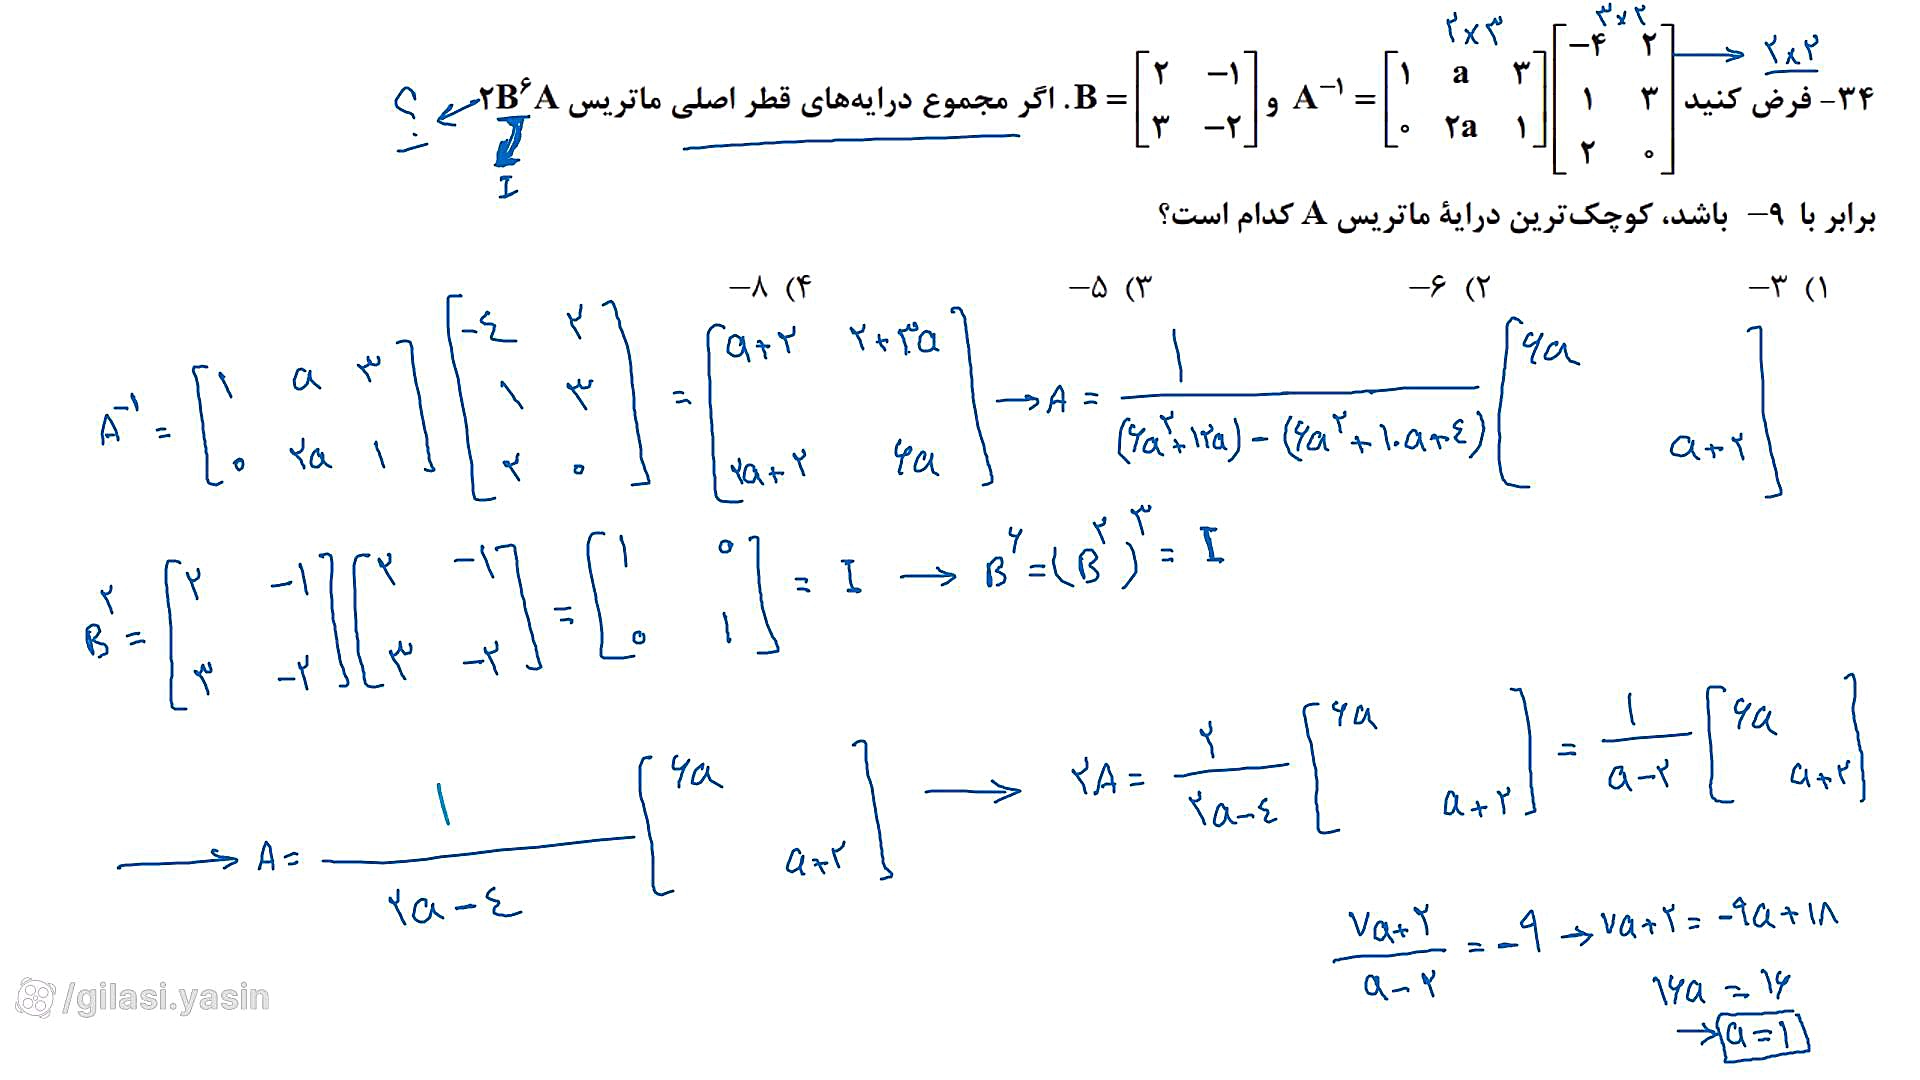 ۳۴- فرض کنید A⁻¹ = [۱ a ۳ ; ۰ ۲a ۱] [−۴ ۲ ; ۱ ۳ ; ۲ ۰] و B = [۲ −۱ ; ۳ −۲]. اگر مجموع درایه‌های قطر اصلی ماتریس ۲B⁶A
برابر با ۹− باشد، کوچک‌ترین درایهٔ ماتریس A کدام است؟
۱) −۳ ۲) −۶ ۳) −۵ ۴) −۸
۲×۳ ۳×۲ → ۲×۲
؟ ← I
A⁻¹ = [۱ a ۳ ; ۰ ۲a ۱] [−٤ ۲ ; ۱ ۳ ; ۲ ۰] = [a+۲ ۲+۳a ; ۲a+۲ ۶a] → A = ۱ / (۶a²+۱۲a) − (۶a²+۱۰a+٤) [۶a ; a+۲]
B² = [۲ −۱ ; ۳ −۲] [۲ −۱ ; ۳ −۲] = [۱ ۰ ; ۰ ۱] = I → B⁶ = (B²)³ = I
→ A = ۱ / ۲a−٤ [۶a ; a+۲] → ۲A = ۲ / ۲a−٤ [۶a ; a+۲] = ۱ / a−۲ [۶a ; a+۲]
۷a+۲ / a−۲ = −۹ → ۷a+۲ = −۹a+۱۸
۱۶a = ۱۶
→ a = ۱
/gilasi.yasin